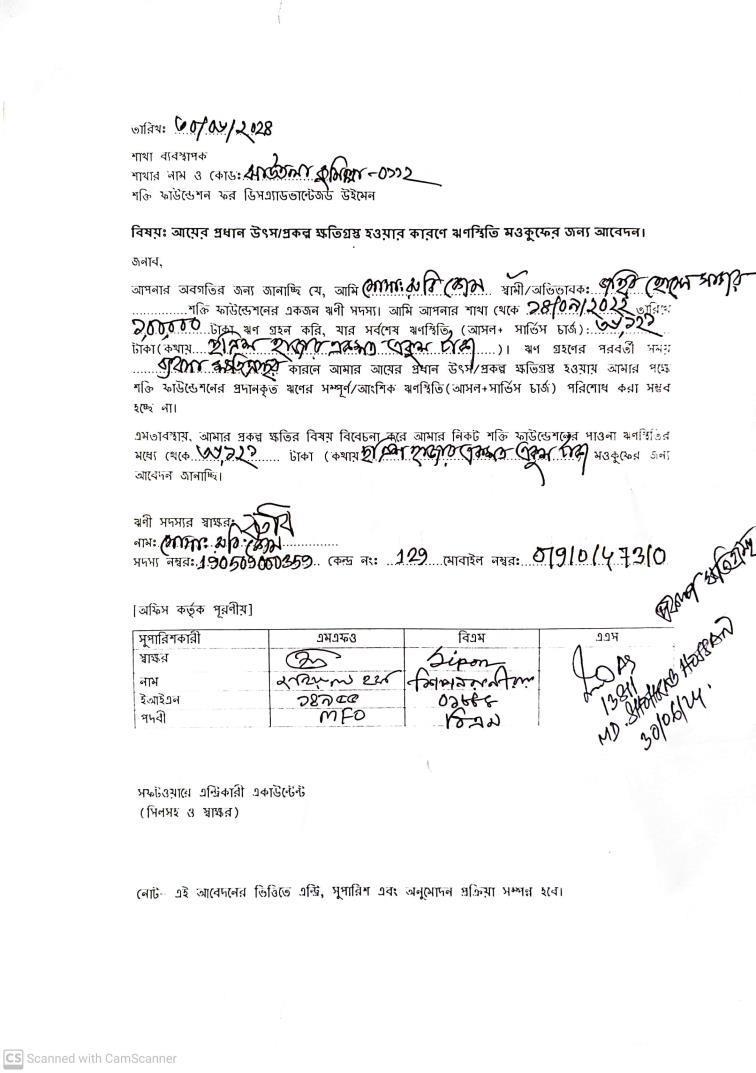 তারিখ: ৩০/০৬/২০২৪
শাখা ব্যবস্থাপক
শাখার নাম ও কোড: ঝাউতলা কুমিল্লা-০১১২
শক্তি ফাউন্ডেশন ফর ডিসএ্যাডভান্টেজড উইমেন
বিষয়: আয়ের প্রধান উৎস/প্রকল্প ক্ষতিগ্রস্থ হওয়ার কারণে ঋণস্থিতি মওকুফের জন্য আবেদন।
জনাব,
আপনার অবগতির জন্য জানাচ্ছি যে, আমি মোসা: রুবি বেগম স্বামী/অভিভাবক:
শক্তি ফাউন্ডেশনের একজন ঋণী সদস্য। আমি আপনার শাখা থেকে ১৪/০৯/২০২২ তারিখে
১,০০,০০০ টাকা ঋণ গ্রহন করি, যার সর্বশেষ ঋণস্থিতি (আসল+ সার্ভিস চার্জ): ৩৬,১২১
টাকা (কথায় ছত্রিশ হাজার একশত একুশ টাকা)। ঋণ গ্রহণের পরবর্তী সময়
কারনে আমার আয়ের প্রধান উৎস/প্রকল্প ক্ষতিগ্রস্থ হওয়ায় আমার পক্ষে
শক্তি ফাউন্ডেশনের প্রদানকৃত ঋণের সম্পূর্ণ/আংশিক ঋণস্থিতি (আসল+সার্ভিস চার্জ) পরিশোধ করা সম্ভব
হচ্ছে না।
এমতাবস্থায়, আমার প্রকল্প ক্ষতির বিষয় বিবেচনা করে আমার নিকট শক্তি ফাউন্ডেশনের পাওনা ঋণস্থিতির
মধ্যে থেকে ৩৬,১২১ টাকা (কথায় ছত্রিশ হাজার একশত একুশ টাকা মওকুফের জন্য
আবেদন জানাচ্ছি।
ঋণী সদস্যের স্বাক্ষর: রুবি
নাম: মোসা: রুবি বেগম
সদস্য নম্বর: 190509000359 কেন্দ্র নং: 129 মোবাইল নম্বর:
প্রকল্প ক্ষতিগ্রস্থ
[অফিস কর্তৃক পূরণীয়]
সুপারিশকারী এমএফও বিএম এএস
স্বাক্ষর Sipon
নাম
ইআইএন
পদবী MFO বিএম
AS
1311
MD. SHOHRAB HOSSAN
30/06/24.
সফটওয়ারে এন্ট্রিকারী একাউন্টেন্ট
(সিলসহ ও স্বাক্ষর)
নোট- এই আবেদনের ভিত্তিতে এন্ট্রি, সুপারিশ এবং অনুমোদন প্রক্রিয়া সম্পন্ন হবে।
CS Scanned with CamScanner